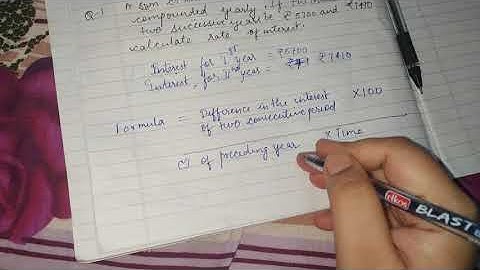 Q-1 A sum
compounded yearly. If the
two successive years be ₹ 5700 and ₹ 7410
calculate rate of interest.
Interest for Iˢᵗ year = ₹5700
Interest for IIⁿᵈ year = ₹7410
Formula = Difference in the interest
of two consecutive period X100
CI of preceding year x Time
elkos BLASTE